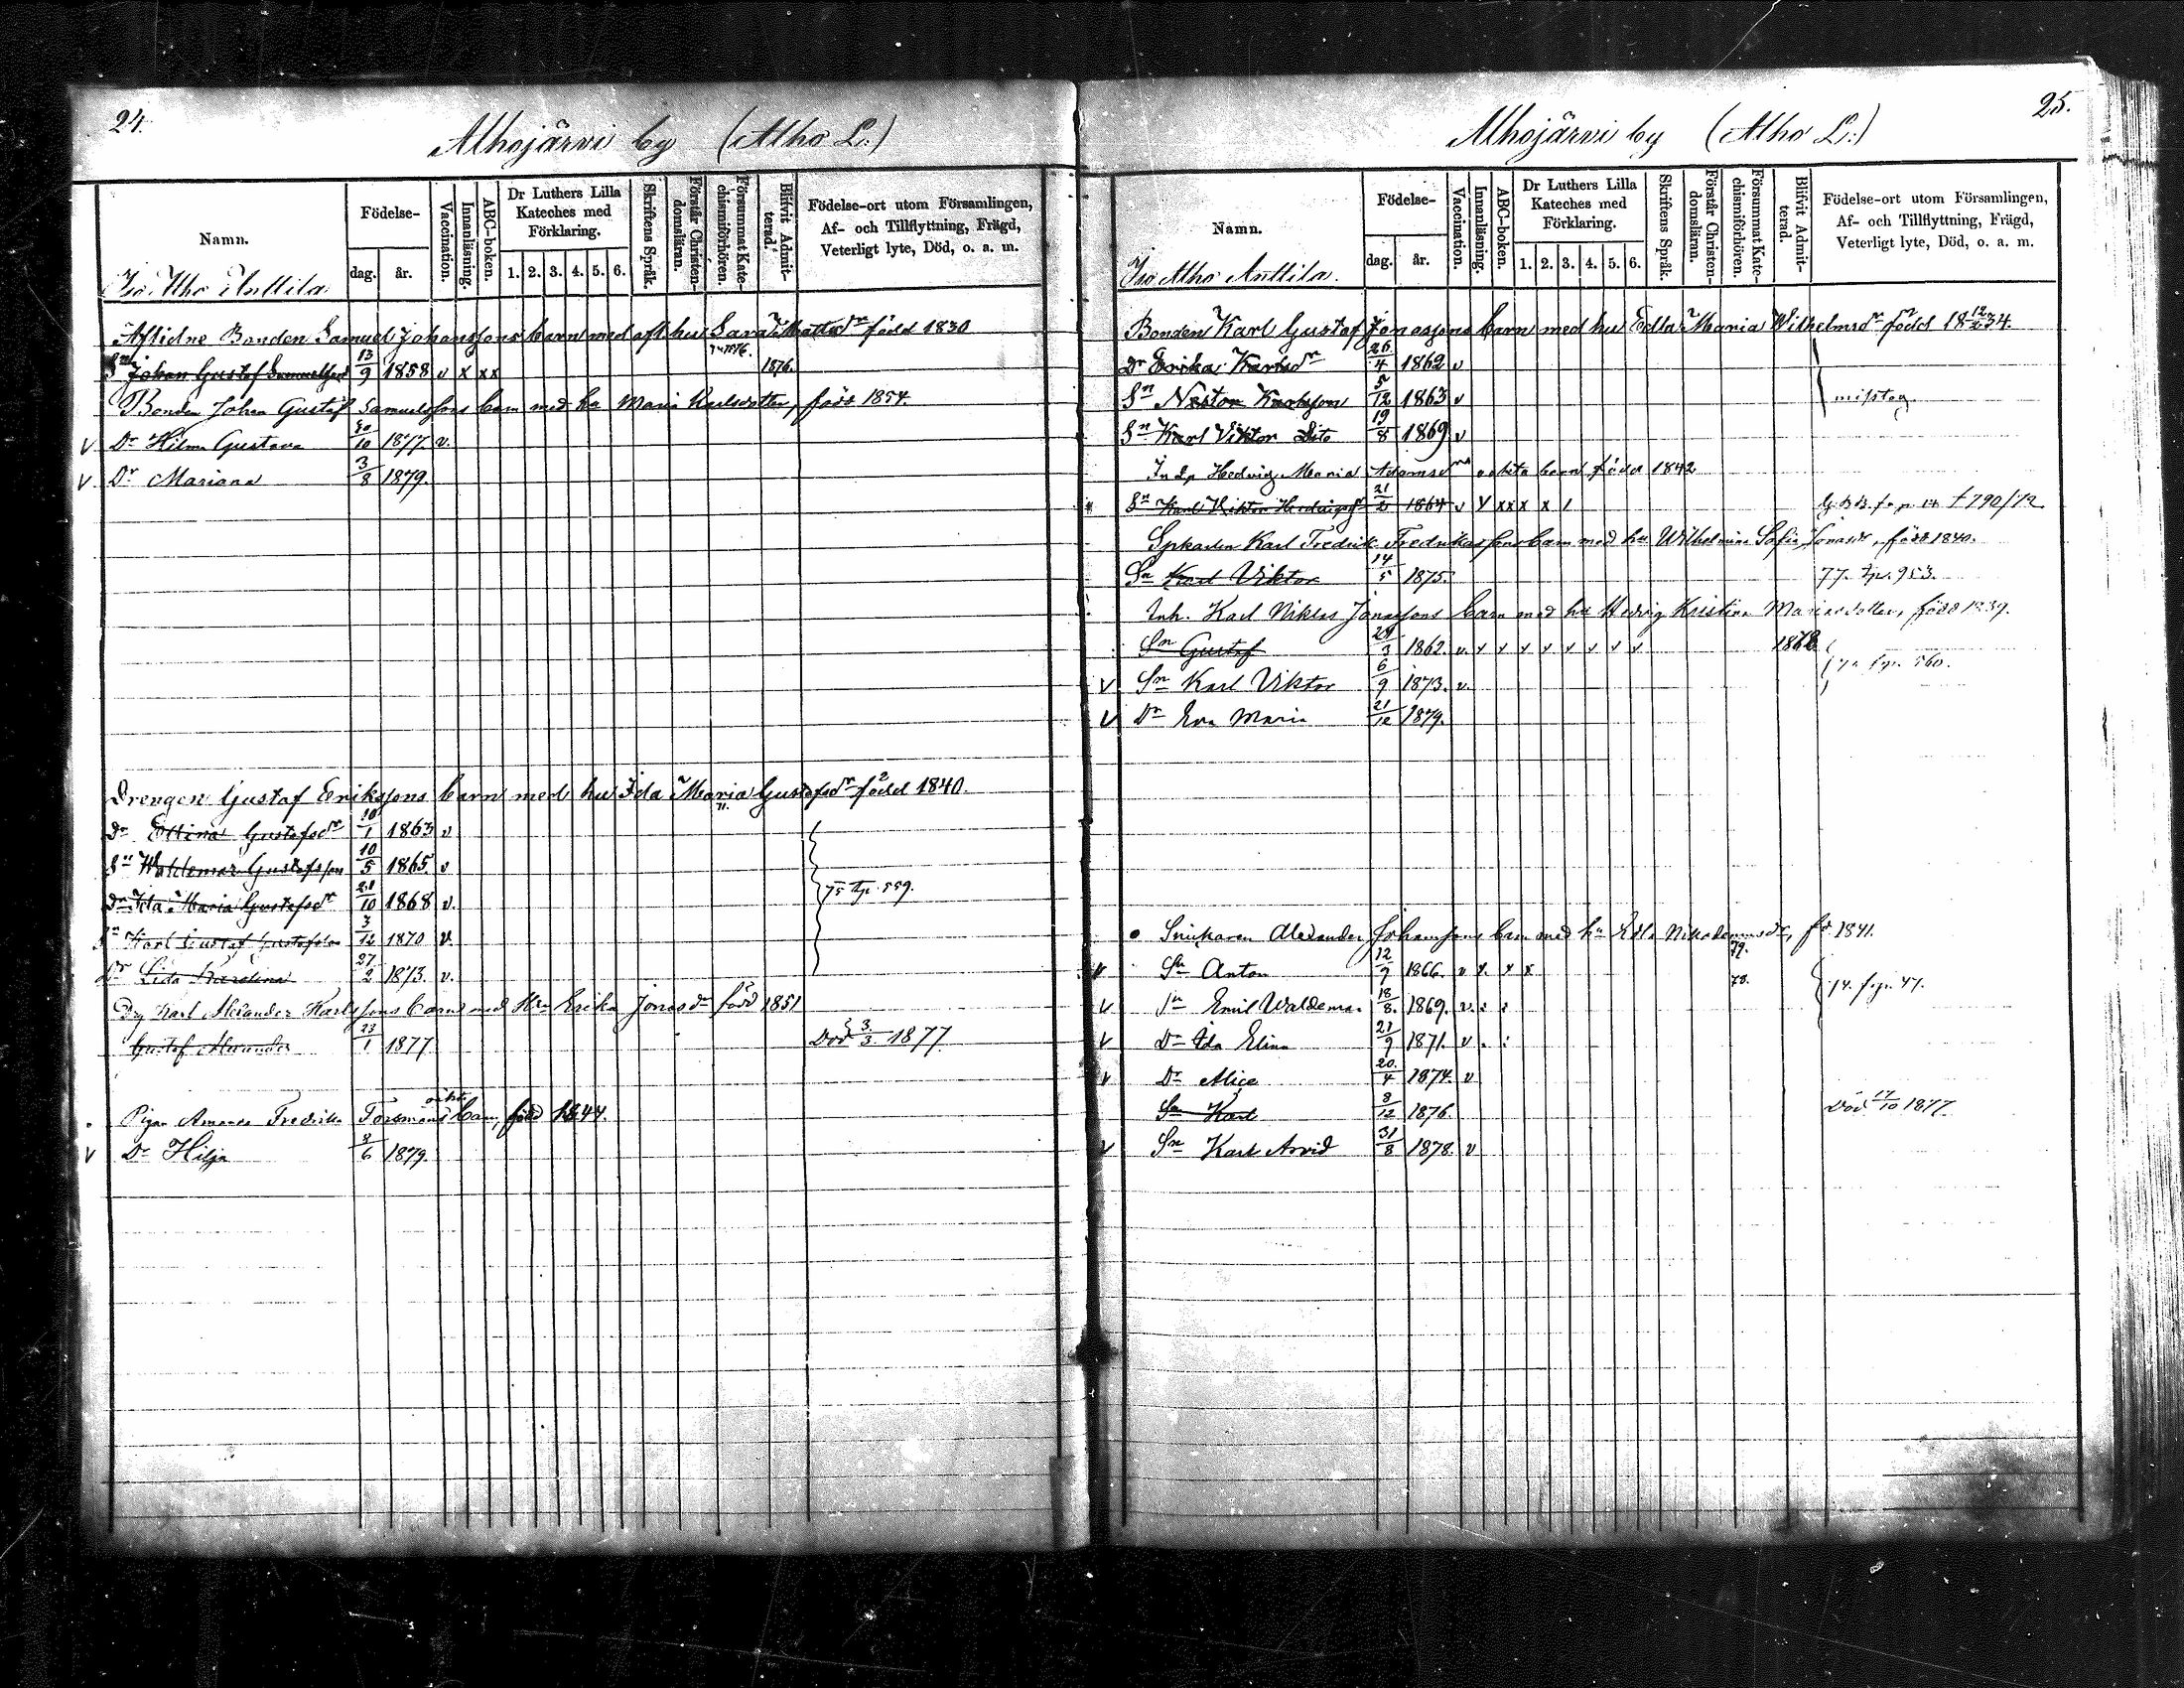 24.
Alhojärvi by (Alho L.)
Namn.
Födelse-
dag.
år.
Vaccination.
Innanläsning.
ABC-boken.
Dr Luthers Lilla Kateches med Förklaring.
1. 2. 3. 4. 5. 6.
Skriftens Språk.
Förstår Christendomsläran.
Försummat Katechismiförhören.
Blifvit Admitterad.
Födelse-ort utom Församlingen, Af- och Tillflyttning, Frägd, Veterligt lyte, Död, o. a. m.
Iso Alho Anttila
Aflidne Bonden Samuel Johanssons barn med afl. hu Sara Mattsdr född 1830
Sn Johan Gustaf Samuelsson 13/9 1858 v x xx 1876.
Bonden Johan Gustaf Samuelssons barn med hu Maria Karlsdotter, född 1854.
v Dr Hilma Gustava 30/10 1877. v.
v Dr Mariana 3/8 1879.
Drengen Gustaf Erikssons barn med hu Ida Maria Gustafsdr född 1840.
71.
Dr Gustafsdr 10/1 1863 v
Sn Waldemar Gustafsson 10/5 1865 v
Dr Ida Maria Gustafsdr 21/10 1868 v.
75 fp. 559.
Sn Karl Gustaf Gustafsson 3/12 1870 v.
Dr Lida Karolina 27/2 1873. v.
Drg Karl Alexander Karlssons barn med Hu Erika Jonasdr född 1851
Gustaf Alexander 23/1 1877 Död 3/3 1877
Pigan Amanda Fredrika Forsmans oäkta barn, född 1844.
v Dr Hilja 8/6 1879.
25.
Alhojärvi by (Alho L.)
Namn.
Födelse-
dag.
år.
Vaccination.
Innanläsning.
ABC-boken.
Dr Luthers Lilla Kateches med Förklaring.
1. 2. 3. 4. 5. 6.
Skriftens Språk.
Förstår Christendomsläran.
Försummat Katechismiförhören.
Blifvit Admitterad.
Födelse-ort utom Församlingen, Af- och Tillflyttning, Frägd, Veterligt lyte, Död, o. a. m.
Iso Alho Anttila.
Bonden Karl Gustaf Jonassons barn med hu Edla Maria Wilhelmsdr född 18 12/2 34.
Dr Erika Karlsdr 26/4 1862 v
Sn Nestor Karlsson 5/12 1863 v
misstag
Sn Karl Viktor Dito 19/8 1869 v
Hedvig Maria Adamsdrs oäkta barn född 1842
Sn Karl Viktor Hedvigs 21/2 1864 v x xx x x / 790/72
Karl Fredrik Fredrikssons barn med hu Wilhelmina Sofia Jonasdr, född 1840.
Sn Karl Viktor 14/5 1875. 77. fp. 953.
Inh. Karl Niklas Jonassons barn med hu Hedvig Kristina Mariasdotter, född 1839.
Sn Gustaf 24/3 1862. v v v v v v v v v 1878
fp. 560.
v Sn Karl Viktor 6/9 1873. v.
v Dr Eva Maria 21/12 1879.
Snickaren Alexander Johanssons barn med hu Edla Nikodemusdr, fö 1841.
79.
v Sn Anton 12/9 1866. v x. x x
78.
fp. 47.
v Sn Emil Waldemar 18/8. 1869. v. : :
v Dr Ida Elina 21/9 1871. v . :
v Dr Alice 20./4 1874. v
Sn Karl 8/12 1876. Död 17/10 1877.
v Sn Karl Arvid 31/8 1878. v